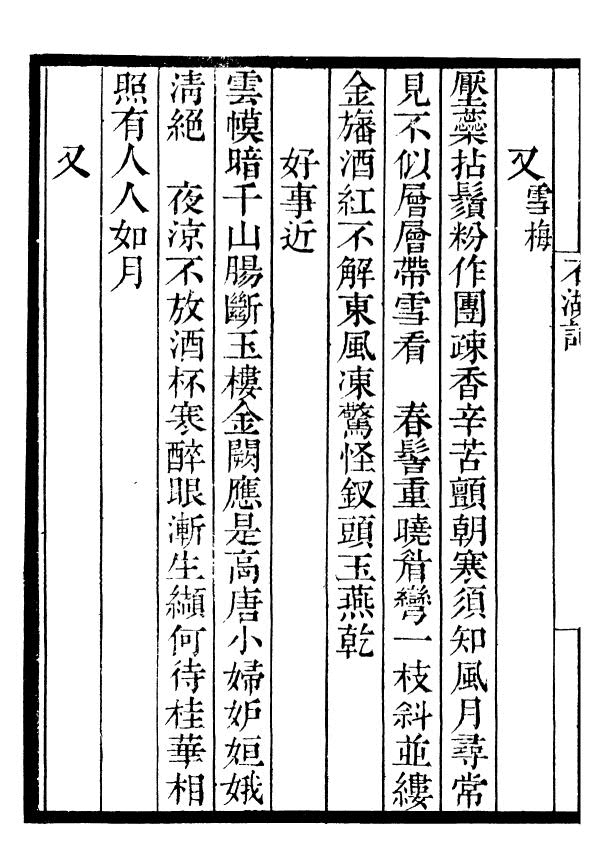 石湖詞
又雪梅
壓蘂拈鬚粉作團疎香辛苦顫朝寒須知風月尋常
見不似層層帶雪看　春髻重曉眉彎一枝斜並縷
金旛酒紅不解東風凍驚怪釵頭玉燕乾
好事近
雲幙暗千山腸斷玉樓金闕應是高唐小婦妒姮娥
清絕　夜涼不放酒杯寒醉眼漸生纈何待桂華相
照有人人如月
又